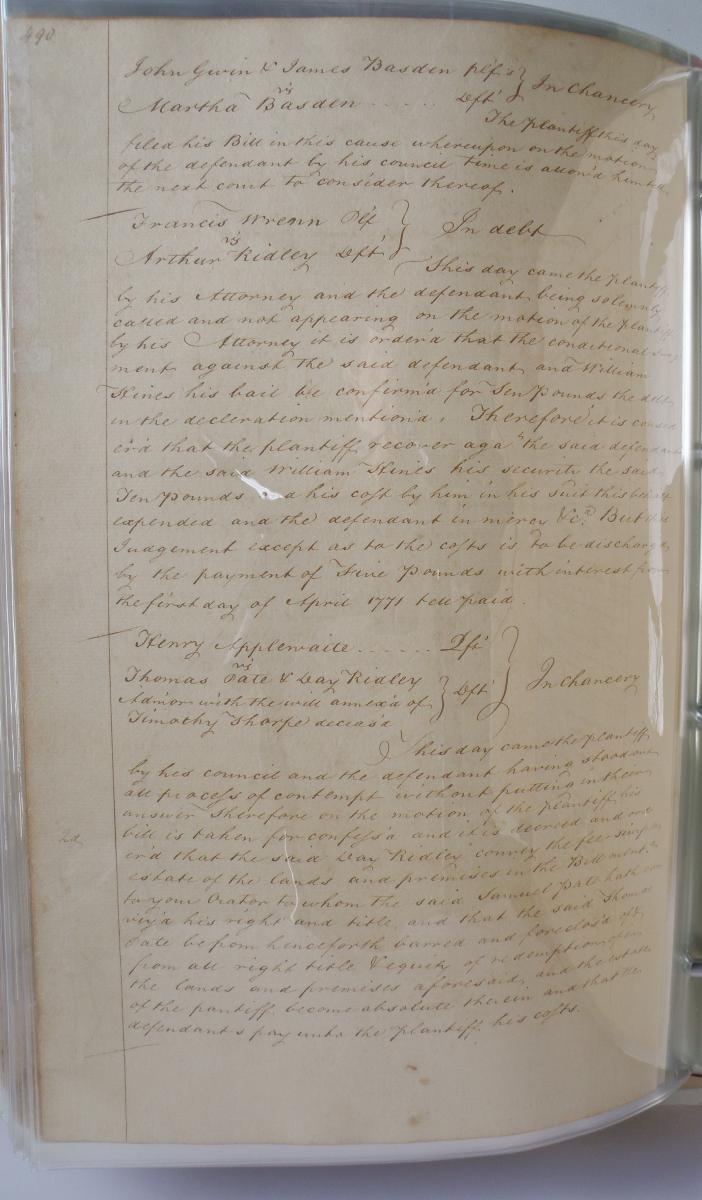 490
John Gwin & James Basden plfs } In Chancery
vs
Martha Basden ..... Dft
The plaintiff this day
filed his Bill in this cause whereupon on the motion
of the defendant by his council time is allow'd him till
the next court to consider thereof.
Francis Wrenn Plf } In debt
vs
Arthur Ridley Dft
This day came the plaintiff
by his Attorney and the defendant being solemnly
called and not appearing on the motion of the plantiff
by his Attorney it is order'd that the conditional
ment against the said defendant and William
Hines his bail be confirm'd for Ten Pounds the debt
in the decleration mention'd. Therefore it is consid
er'd that the plantiff recover aga.t the said defendant
and the said William Hines his security the said
Ten Pounds d his cost by him in his suit this behalf
expended and the defendant in mercy &c.a But this
Judgement except as to the costs is to be discharged
by the payment of Five Pounds with interest from
the first day of April 1771 till paid.
Henry Applewaite ...... Plf
vs
Thomas Pate & Day Ridley } Dft } In Chancery
Admors with the will annex'd of
Timothy Tharpe deceas'd
This day came the plantiff
by his council and the defendant having stood out
all process of contempt without putting in their
answer Therefore on the motion of the plantiff his
bill is taken for confess'd and it is decreed and ord
2d
er'd that the said Day Ridley convey the fee simple
estate of the lands and premises in the Bill ment.d
to your Orator to whom the said Samuel Pate hath con
vey'd his right and title and that the said Thomas
Pate be from henceforth barred and foreclos'd of
from all right title & equity of redemption
the lands and premises aforesaid and the estate
of the pantiff become absolute therein and that the
defendants pay unto the plantiff his costs.